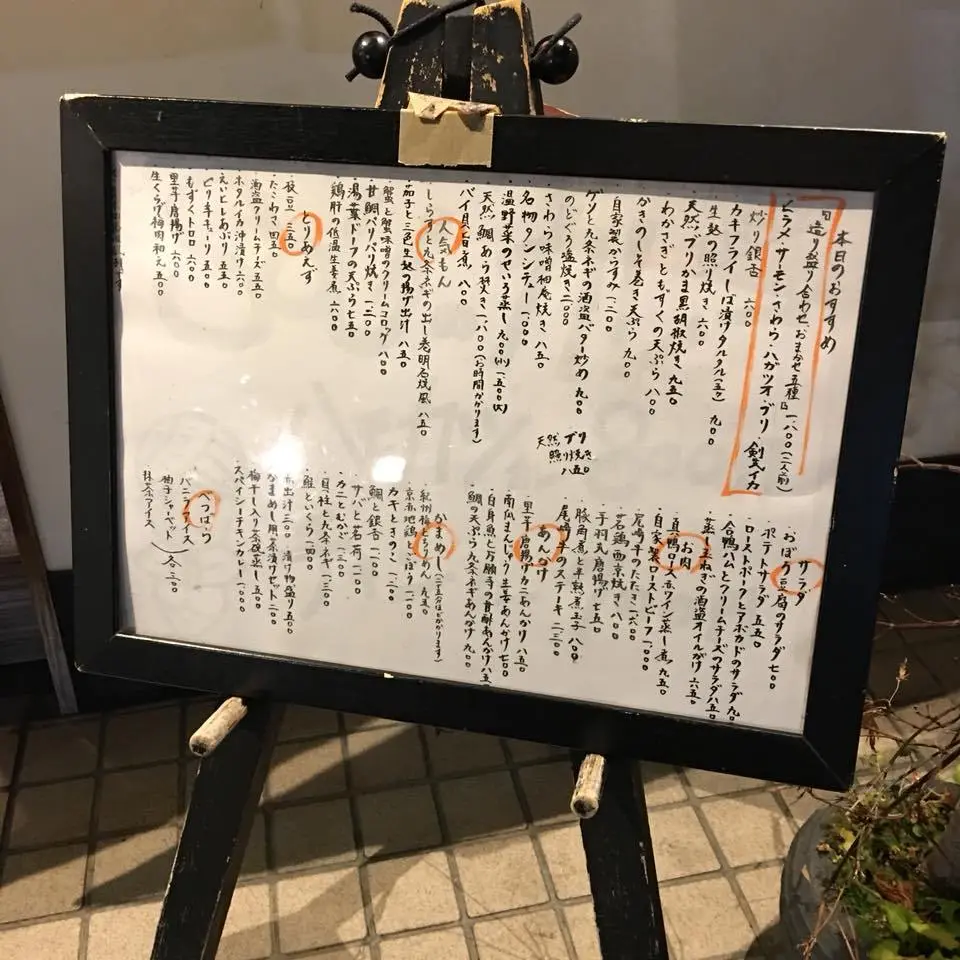 本日のおすすめ
『造り盛り合わせ、おまかせ五種』一.八〇〇(二人前)
ヒラメ・サーモン・さわら・ハガツオ・ブリ・剣先イカ
炒り銀杏 六〇〇
カキフライしば漬けタルタル(五ヶ) 九〇〇
生麩の照り焼き 六〇〇
天然ブリかま黒胡椒焼き 九五〇
わかさぎともずくの天ぷら 八〇〇
かきのしそ巻き天ぷら 九〇〇
自家製からすみ 一.二〇〇
グリと九条ネギの酒盗バター炒め 九〇〇
のどぐろ塩焼き 二.〇〇〇
さわら味噌柚庵焼き 八五〇
名物タンシチュー 一.〇〇〇
温野菜のせいろ蒸し 九〇〇(小) 一.五〇〇(大)
天然鯛あら炊き 一.八〇〇(お時間かかります)
バイ貝旨煮 八〇〇
天然ブリ
照り焼き
八五〇
人気もん
しらすと九条ネギの出し巻明石焼風 八五〇
茄子と三色生麩の揚げ出汁 八五〇
蟹と蟹味噌のクリームコロッケ 八〇〇
甘鯛パリパリ焼き 一.二〇〇
湯葉ドーフの天ぷら 七五〇
鶏肝の低温生姜煮 六〇〇
とりあえず
枝豆 三五〇
たこわさ 四五〇
酒盗クリームチーズ 五五〇
ホタルイカ沖漬け 六〇〇
えいヒレあぶり 五五〇
とりキキューリ 五五〇
もずくトロロ 六〇〇
里芋唐揚げ 六〇〇
生くらげ梅肉和え 五〇〇
サラダ
おぼろ豆腐のサラダ 七〇〇
ポテトサラダ 五五〇
ローストポークとアボカドのサラダ 九〇〇
合鴨ハムとクリームチーズのサラダ 八五〇
蒸し玉ねぎの酒盗オイルがけ 六五〇
お肉
真鴨ロース赤ワイン蒸し煮 九五〇
自家製ローストビーフ 一.〇〇〇
尾崎牛のたたき 一.六〇〇
若鶏西京焼き 八〇〇
手羽元唐揚げ 七五〇
豚角煮と半熟煮玉子 八〇〇
尾崎牛のステーキ 二.三〇〇
あんかけ
里芋唐揚げカニあんかけ 八五〇
南瓜まんじゅう生姜あんかけ 七〇〇
白身魚と万願寺の甘酢あんかけ 八五〇
鯛の天ぷら九条ネギあんかけ 九〇〇
かまめし(三五分ほどかかります)
紀州梅とちりめん 九五〇
京赤地鶏とごぼう 一.一〇〇
カキときのこ 一.二〇〇
鯛と銀杏 一.一〇〇
サバと茗荷 一.一〇〇
カニとむかご 一.二〇〇
貝柱と九条ネギ 一.三〇〇
鮭といくら 一.四〇〇
赤出汁 三〇〇 漬け物盛り 五〇〇
かまめし用茶漬けセット 二〇〇
梅干し入り茶碗蒸し 五〇〇
スパイシーチキンカレー 一.〇〇〇
べつばら
バニラアイス
柚子シャーベット 各三〇〇
抹茶アイス